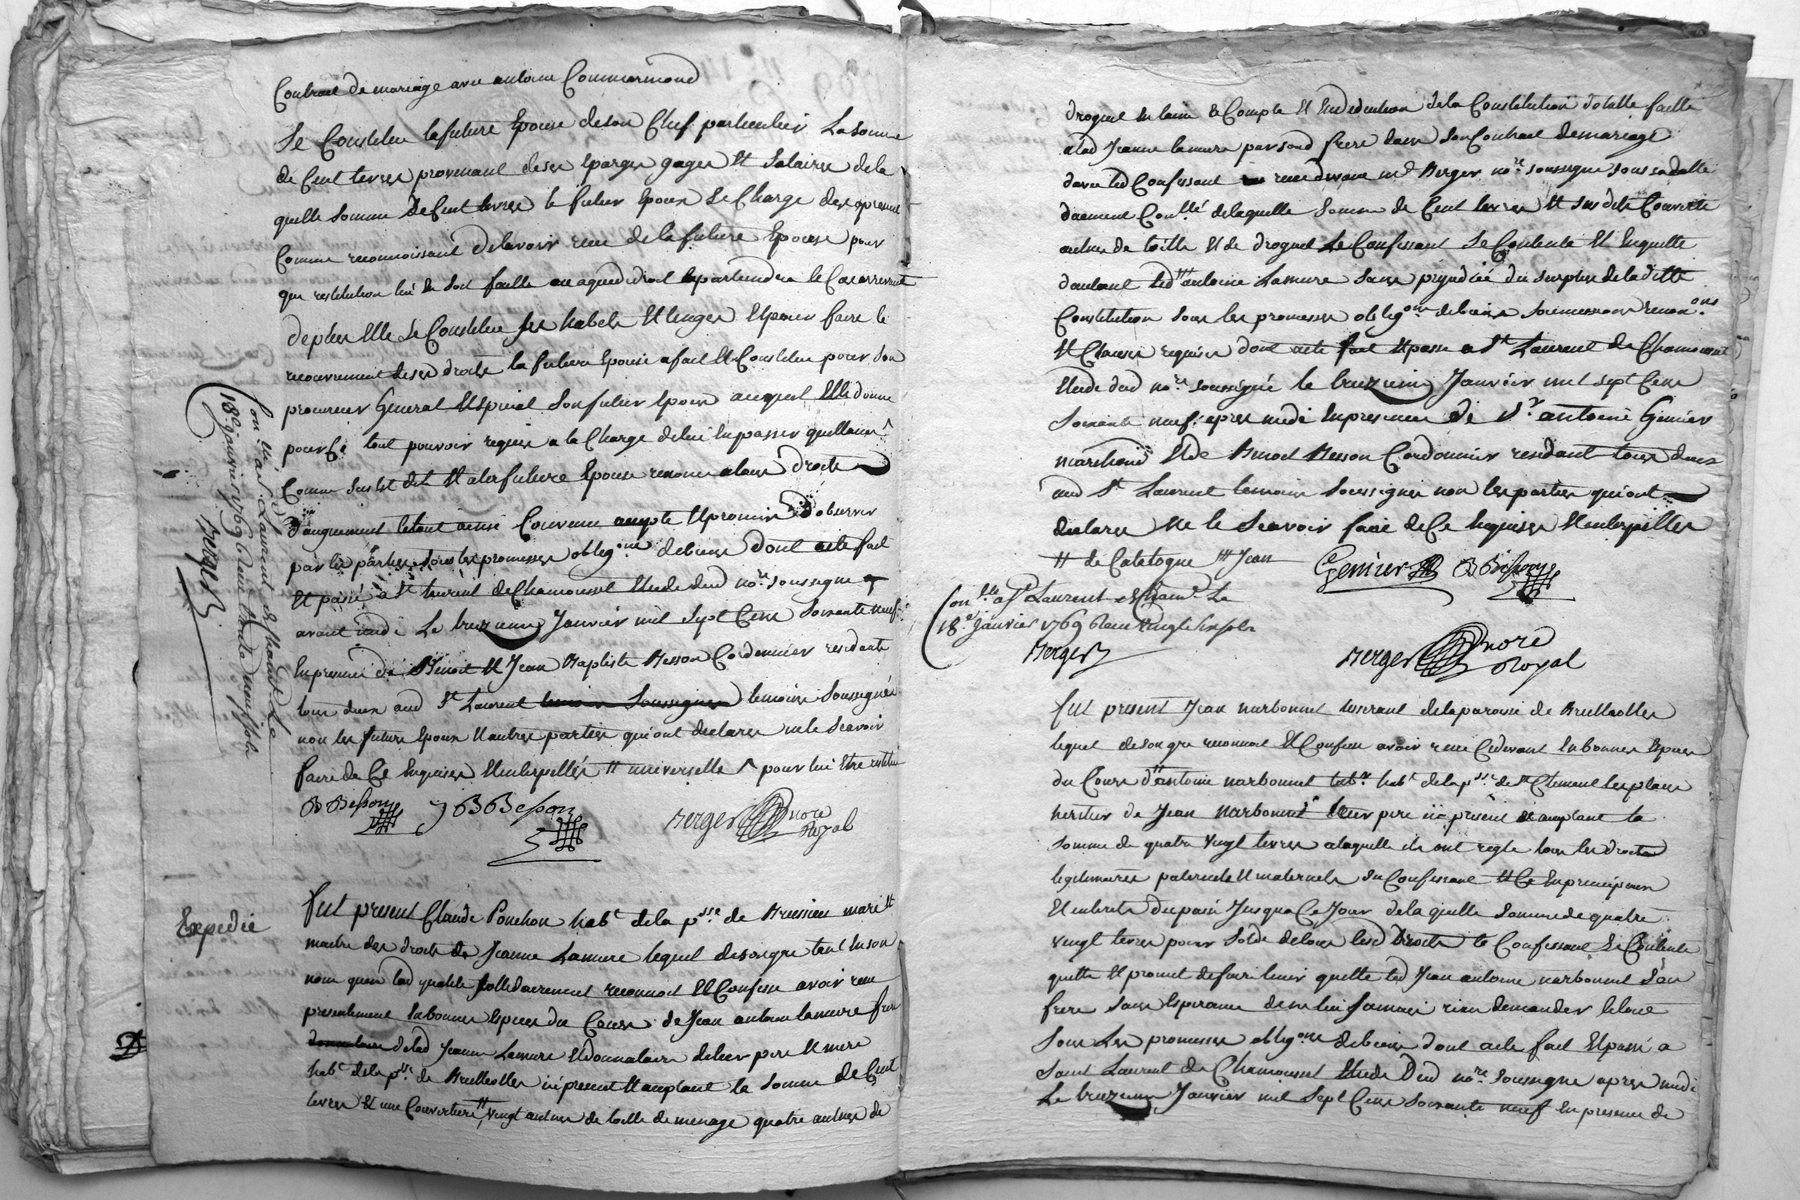 Contrat de mariage avec antoine Commarmond
Se Constitue la future Epouse de son Chef particulier La somme
de Cent livres provenant de ses epargnes gages Et Salaires de la
quelle somme de Cent livres le futur Epoux se Charge des apresent
Comme reconnoissant de lavoir recue de la future Epouse pour
que restitution lui en soit faitte ou aquoi de droit apartiendra le Cas arrivant
de plus Elle se Constitue ses habits Et linges Et pour faire le
recouvrement de ses droits la future Epouse a fait Et Constitue pour son
procureur General Et Special Son futur Epoux auquel Elle donne
pour Ce tout pouvoir requis a la Charge de lui En passer quittance
Comme sus Est dit Et a la future Epouse renoncé a leurs droits
D'augment le tout ainsi Convenu accepté Et promis D'observer
par les parties sous les promesses oblig.ons de biens dont acte fait
Et passé a St laurent de Chamousset Etude dud no.re soussigné
avant midi Le treizieme Janvier mil Sept Cens Soixante neuf
En presence de Benoit Et Jean Baptiste Besson Cordonnier residents
tous deux aud St Laurent temoins Soussignés
non les futurs Epoux Et autres parties qui ont declarés ne le Scavoir
faire de Ce Enquises Et interpellés tt universelle ^ pour lui Etre restitué
B Besson J B Besson Berger nore Royal
Con.lé a St Laurent de Chamt Le
18e janvier 1769
Berger
Expedié
fut present Claude Ponchon hab.t de la p.sse de Brussieu mari Et
maitre des droits de Jeanne Lamure lequel de son gre tant En son
nom quen lad qualite sollidairement reconnoit Et Confesse avoir recu
presentement En bonnes Especes du Cours de Jean antoine lamure frere
de lad Jeanne Lamure Et donnataire de leur pere Et mere
hab.t de la p.sse de Brulliolles ici present Et acceptant la somme de Cent
livres Et une Couverture tt vingt aulnes de toille de menage quatre aulnes de
droguet en laine a Compte Et En deduction de la Constitution dotalle faitte
a lad Jeanne lamure par sond frere dans son Contrat de mariage
davec led Confessant recu devant me Berger no.re soussigné sous sa datte
duement Con.llé de laquelle somme de Cent livres Et susdite Couverte
aulnes de toille Et de droguet Le Confessant Se Contente Et En quitte
d'autant led ttt antoine Lamure sans prejudice du surplus de la ditte
Constitution sous les promesses oblig.ons de biens soumissions renon.ons
Et Clauses requises dont acte fait Et passé a St Laurent de Chamousset
Etude dud no.re soussigné le treizieme Janvier mil sept Cens
Soixante neuf apres midi En presence de Sr antoine Genier
marchand Et de Benoit Besson Cordonnier residant tous deux
aud St Laurent temoins Soussignés non les parties qui ont
declarés Ne le Scavoir faire de Ce Enquises Et interpellés
tt de Catalogne ttt Jean Genier B Besson
Con.llé a St Laurent de Cham.t Le
18e janvier 1769
Berger Berger nore Royal
fut present Jean narbonnet tisserant de la paroisse de Brulliolles
lequel de son gre reconnoit Et Confesse avoir recu Cidevant En bonnes Especes
du Cours d'tt antoine narbonnet hab.t de la p.sse de St Clement les places
heritier de Jean Narbonnet leur pere ici present Et acceptant la
somme de quatre Vingt livres a laquelle ils ont reglé tous les droits
legitimaires paternels Et maternels du Confessant Et Ce En principeaux
Et interets du passé Jusqua Ce Jour de la quelle somme de quatre
vingt livres pour solde de tous lesd Droits le Confessant Se Contente
quitte Et promet de faire tenir quitte led Jean antoine narbonnet son
frere sans Esperance de ne lui Jamais rien demander le tout
sous Les promesses oblig.ons de biens dont acte fait Et passé a
Saint Laurent de Chamousset Etude Dud no.re Soussigné apres midi
Le treizieme Janvier mil Sept Cens Soixante neuf En presence de